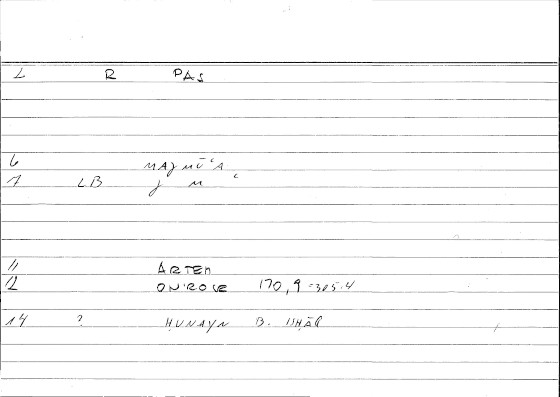 L R PAS
6 MAJMŪ'A
7 LB J M '
11 ARTEM
12 ONIROCR 170,9 = 325.4
14 ? ḤUNAYN B. ISḤĀQ